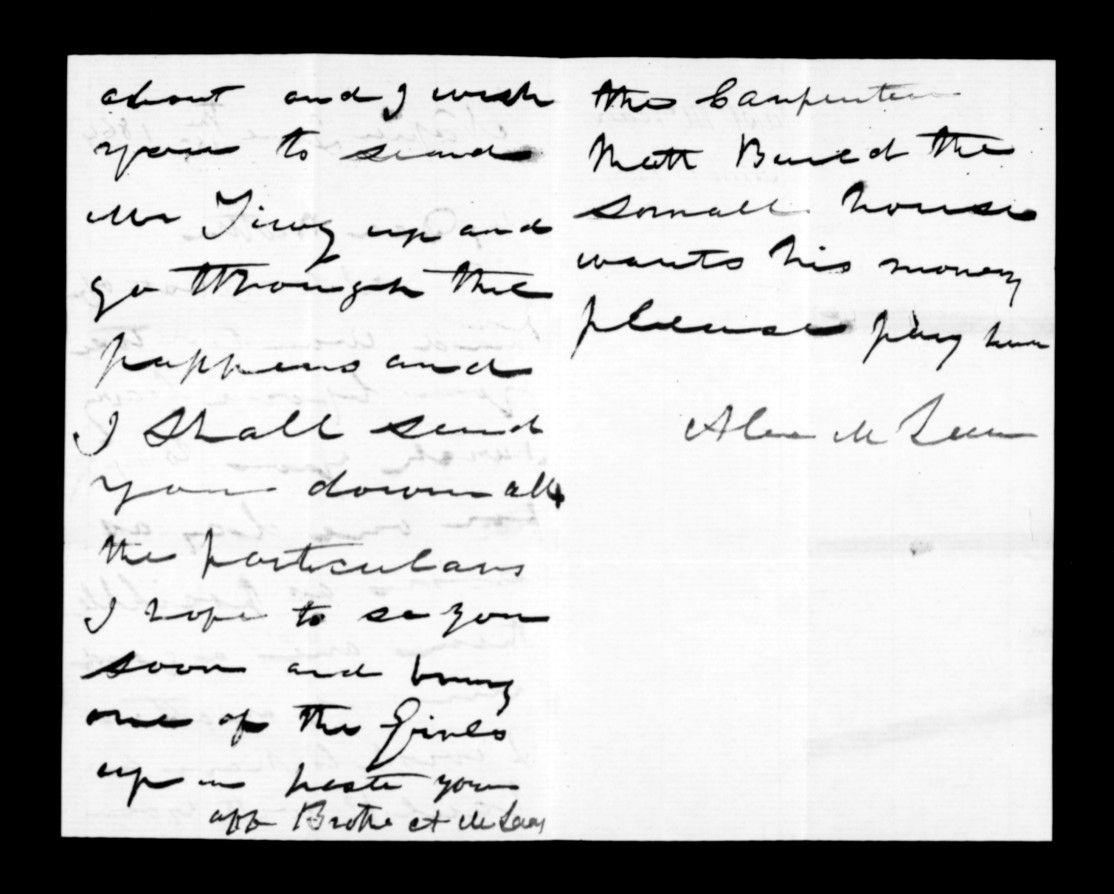 about and I wish
you to send
Mr up and
go tthrough the
pappers and
I Shall send
you down all
the particulars
I hope to se you
soon and bring
one of the Girls
up in haste your
aff Brothe A McLean
the Carpenter
that Bued the
small house
wants his money
please pay him
Alex McLean